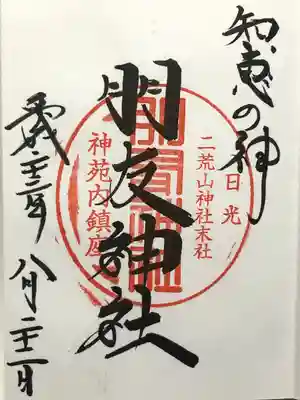 知恵の神
日光
二荒山神社末社
朋友神社
神苑内鎮座
平成二十三年 八月